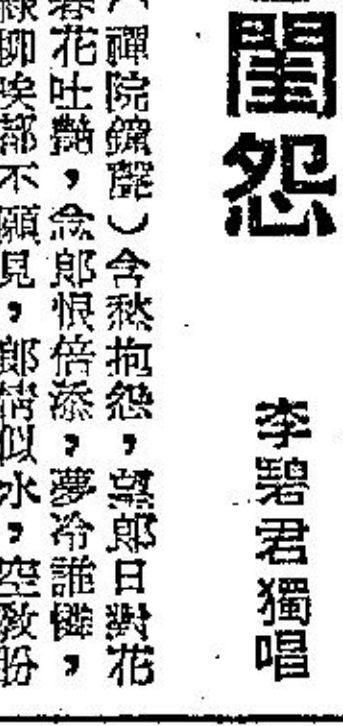 閨怨
李碧君獨唱
（禪院鐘聲）含愁抱怨，望郎日對花
春花吐艷，念郎恨倍添，夢冷誰憐，
綠柳唉都不願見，郎情似水，空教盼